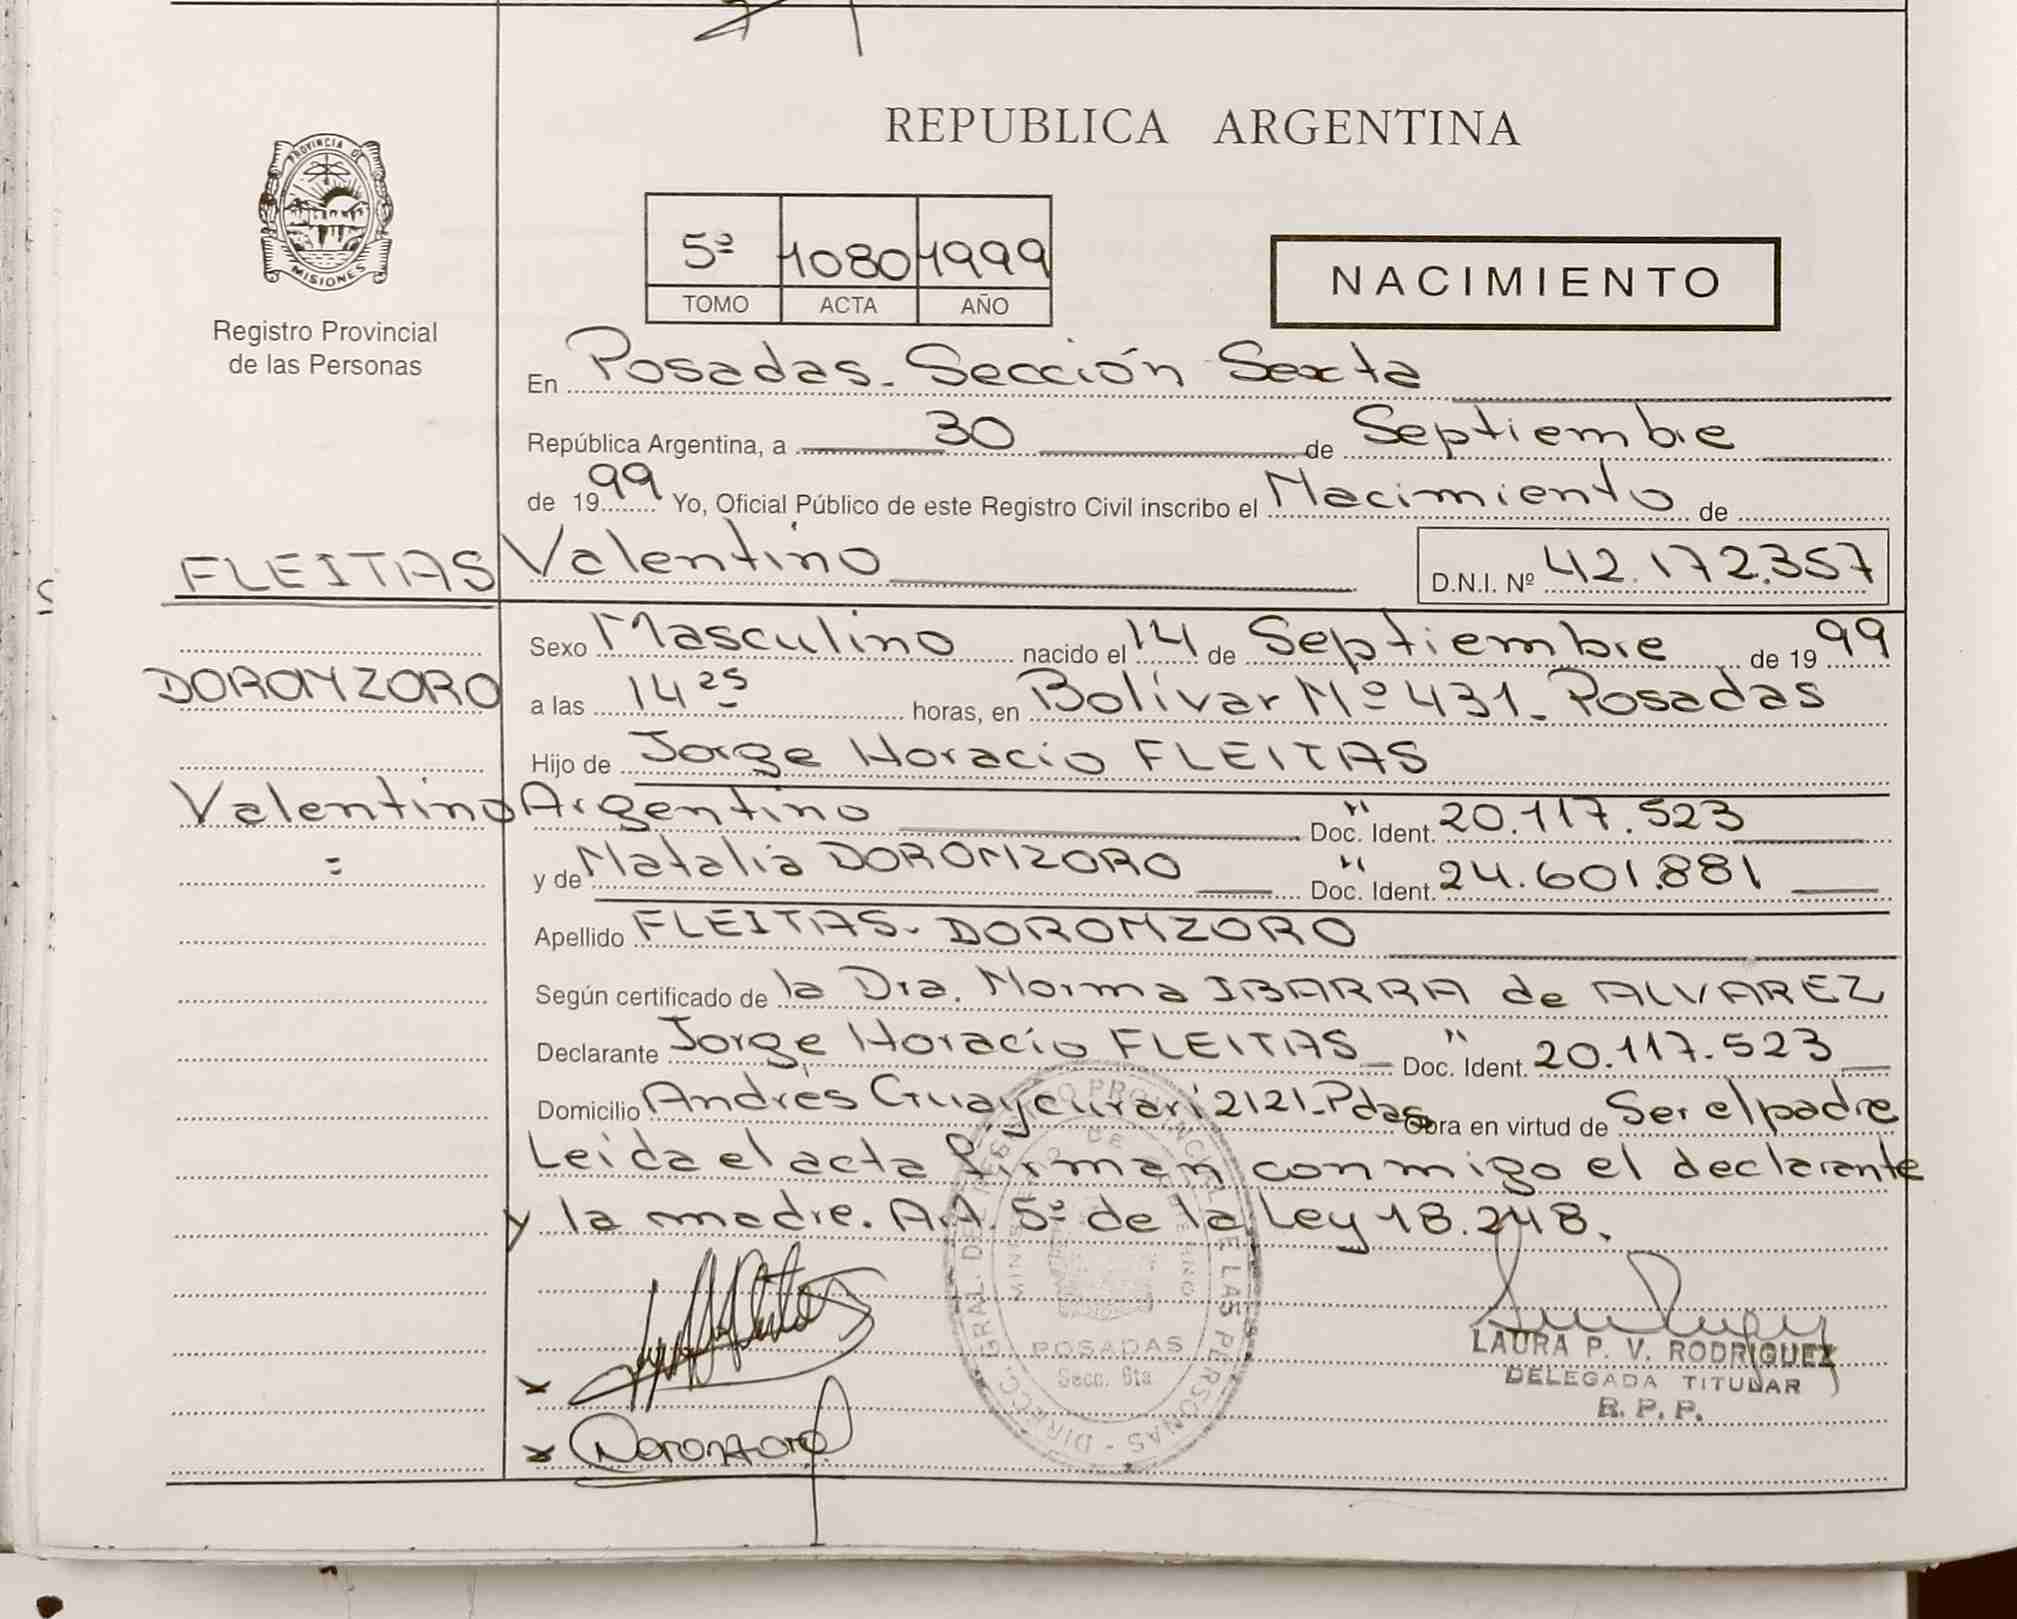 REPUBLICA ARGENTINA
PROVINCIA DE
MISIONES
Registro Provincial
de las Personas
5º 1080 1999
TOMO ACTA AÑO
NACIMIENTO
En Posadas. Sección Sexta
República Argentina, a 30 de Septiembre
de 1999 Yo, Oficial Público de este Registro Civil inscribo el Nacimiento de
FLEITAS Valentino D.N.I. Nº 42.172.357
Sexo Masculino nacido el 14 de Septiembre de 1999
DORONZORO
a las 14 25 horas, en Bolívar Nº 431 - Posadas
Hijo de Jorge Horacio FLEITAS
Valentino
Argentino Doc. Ident. " 20.117.523
=
y de Natalia DORONZORO Doc. Ident. " 24.601.881
Apellido FLEITAS - DORONZORO
Según certificado de la Dra. Norma IBARRA de ALVAREZ
Declarante Jorge Horacio FLEITAS Doc. Ident. " 20.117.523
Domicilio Andrés Guaycurari 2121-Pdas Obra en virtud de Ser el padre
Leida el acta firman conmigo el declarante
y la madre. A.A. 5º de la Ley 18.248.
DIRECC. GRAL. DEL REGISTRO PROVINCIAL DE LAS PERSONAS
POSADAS
Secc. 6ta
LAURA P. V. RODRIGUEZ
DELEGADA TITULAR
R. P. P.
x
x Doronzoro